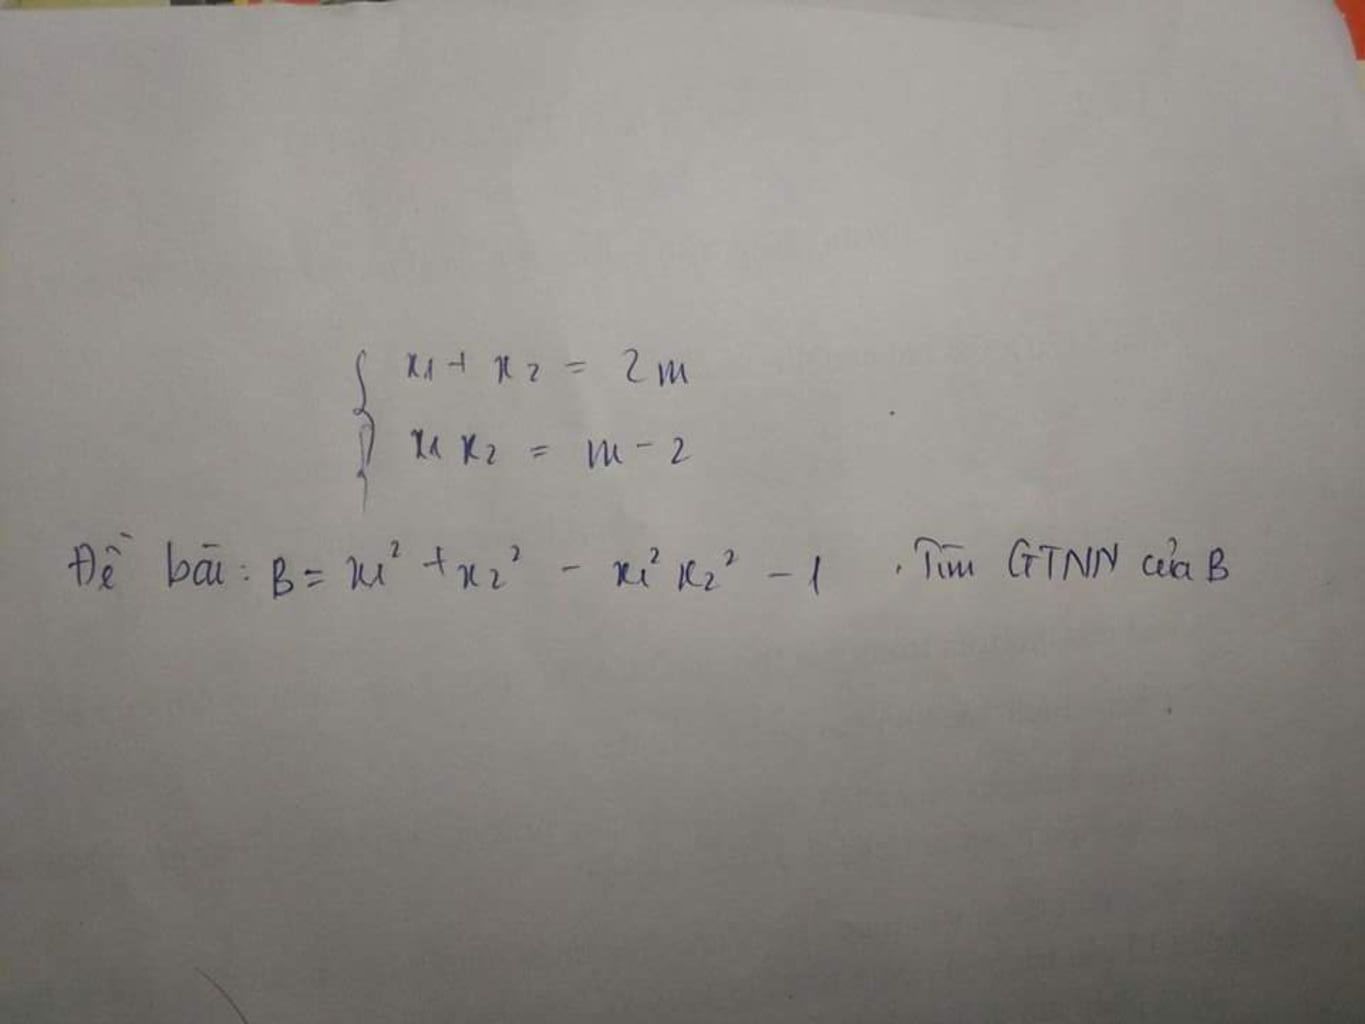 x1 + x2 = 2m
x1 x2 = m - 2
Đề bài: B = x1² + x2² - x1² x2² - 1 . Tìm GTNN của B